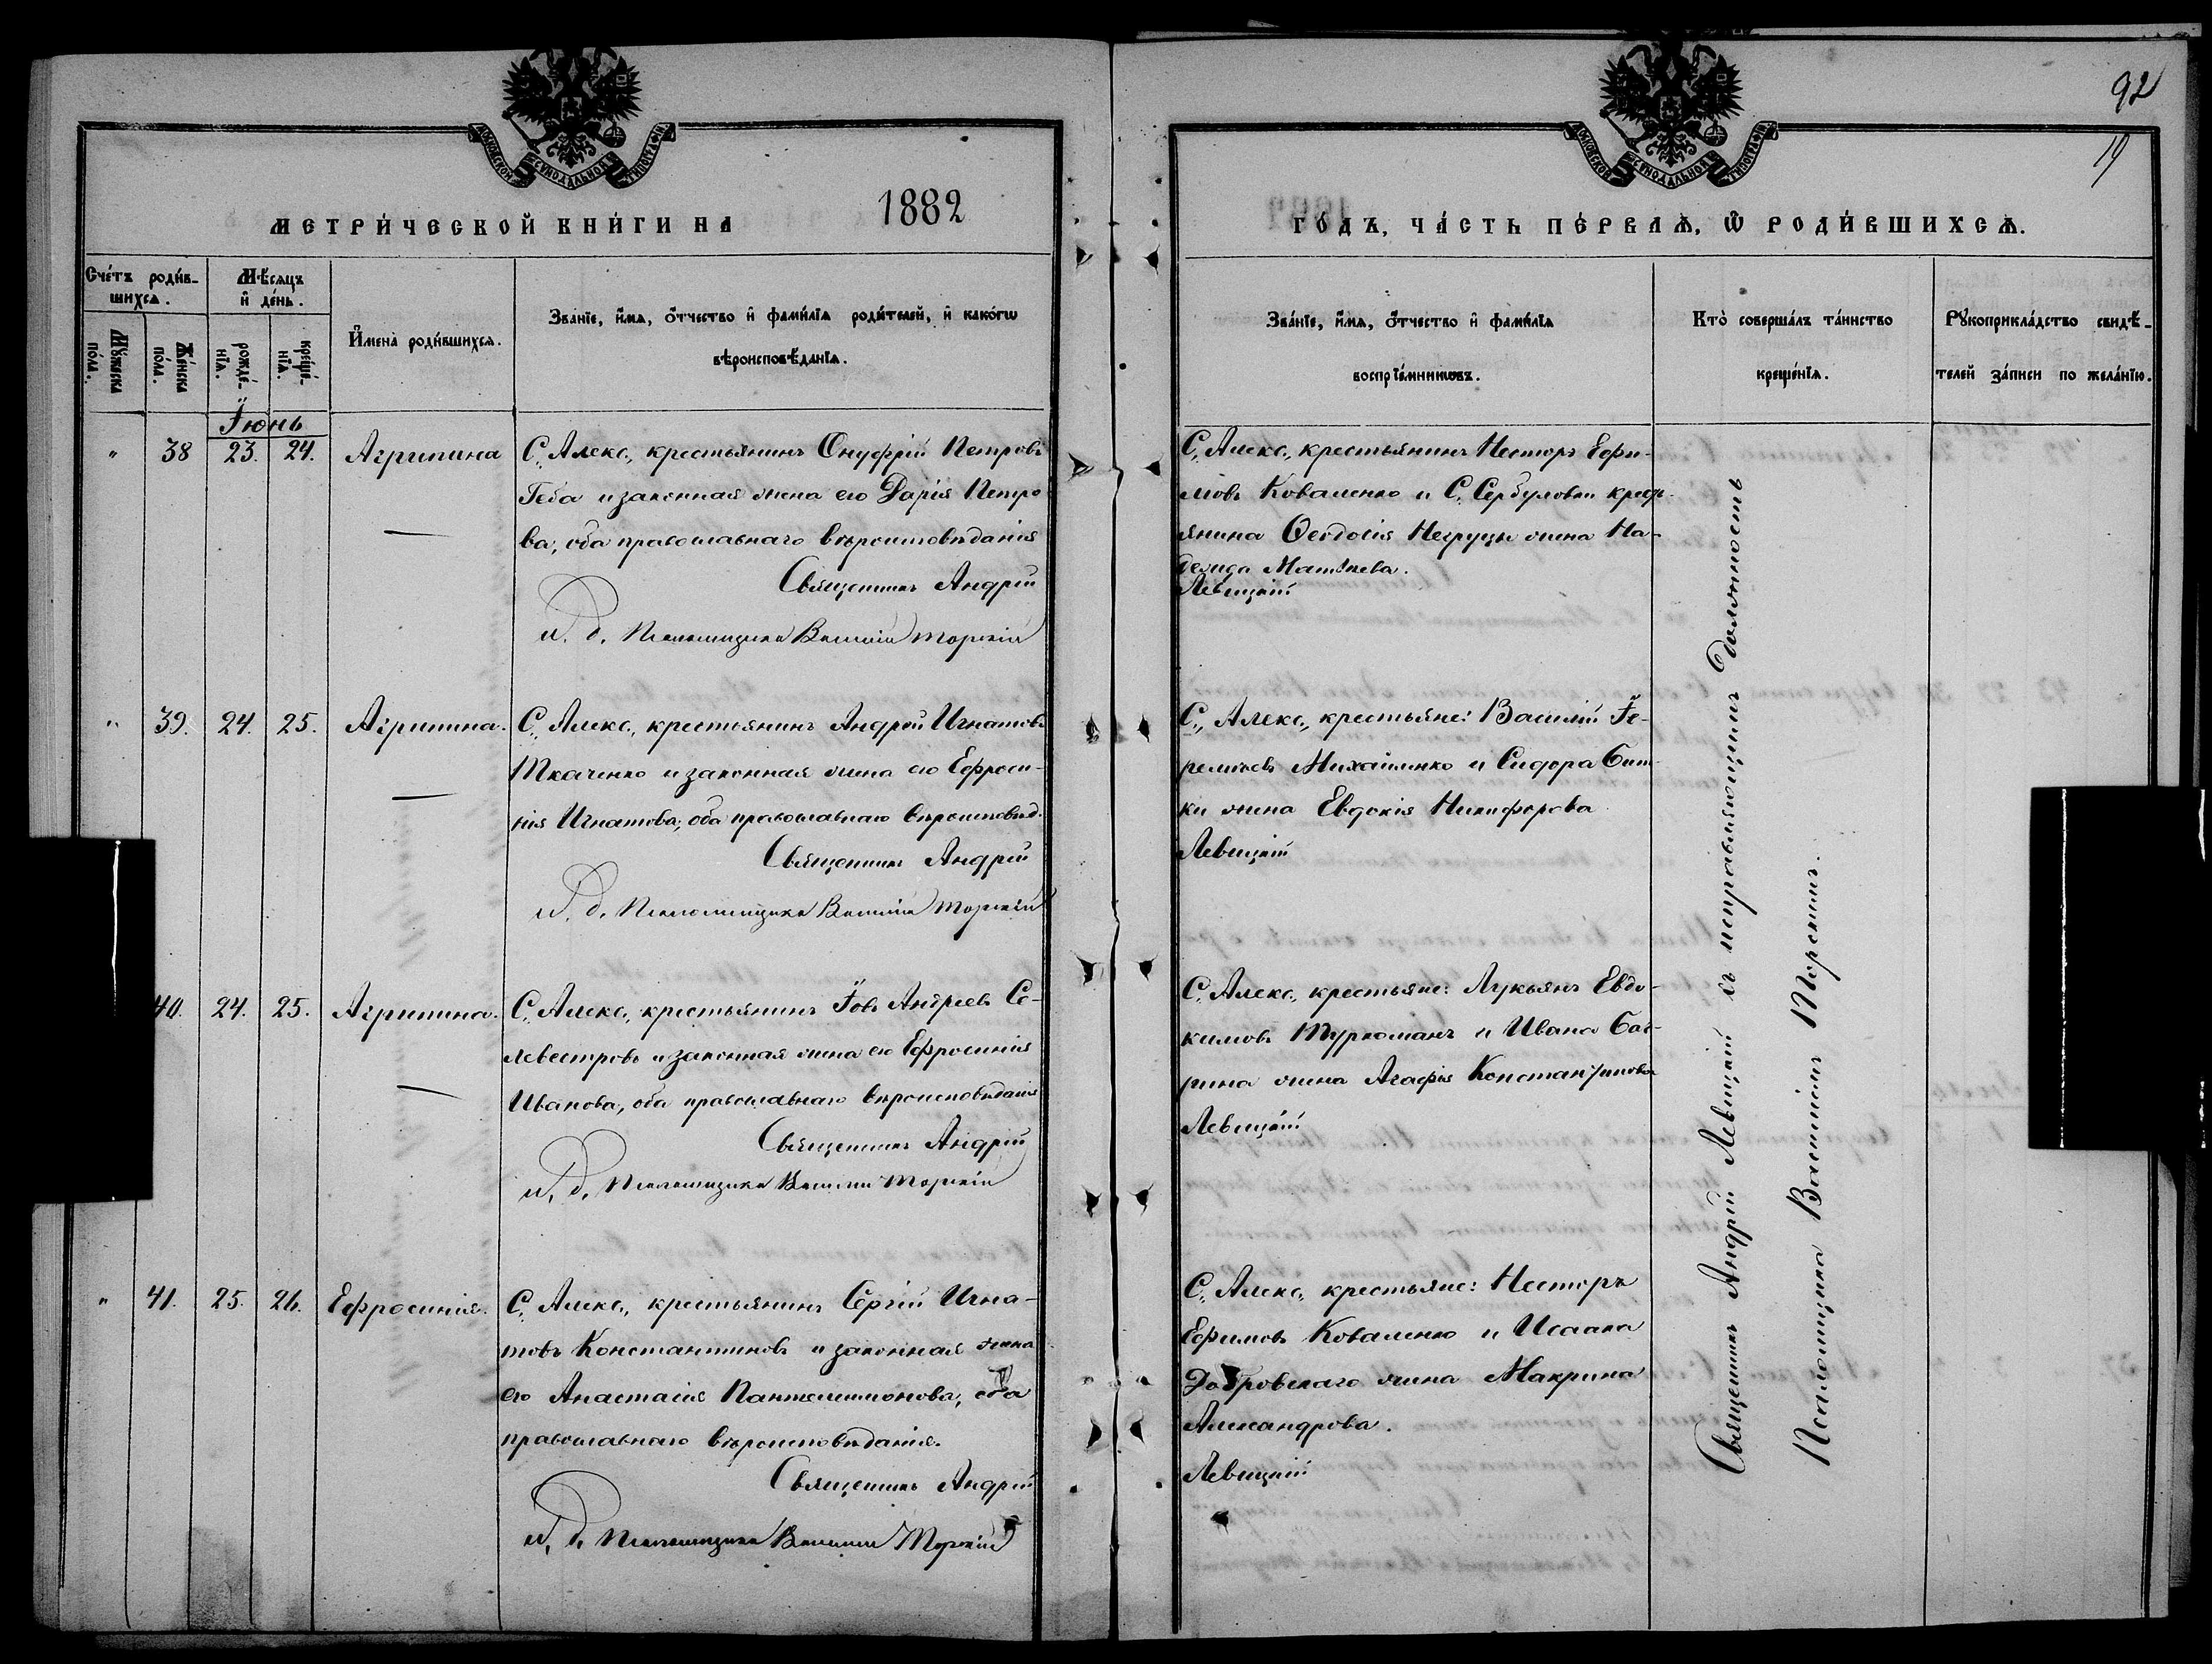 92
19
МОСКОВСКОЙ СѴНОДАЛЬНОЙ ТИПОГРАФІИ
МОСКОВСКОЙ СѴНОДАЛЬНОЙ ТИПОГРАФІИ
МЕТРИ́ЧЕСКОЙ КНИ́ГИ НА 1882
ГО́ДЪ, ЧА́СТЬ ПЕ́РВАѦ, Ѿ РОДИ́ВШИХСѦ.
Сче́тъ роди́в-
шихсѧ.
Мꙋ́жеска
по́ла.
Же́нска
по́ла.
Мѣ́сяцъ
и де́нь.
рожде́-
нїѧ.
креще́-
нїѧ.
И҆мена̀ роди́вшихсѧ.
Зва́нїе, и҆́мѧ, ѻ҆́тчество и҆ фами́лїѧ роди́телей, и҆ како́гѡ
вѣроисповѣ́данїѧ.
Зва́нїе, и҆́мѧ, ѻ҆́тчество и҆ фами́лїѧ
воспрїе́мникѡвъ.
Кто̀ соверша́лъ та́инство
креще́нїѧ.
Рꙋкоприкла́дство свидѣ́-
телей за́писи по жела́нїю.
Іюнь
" 38 23. 24. Агрипина
С. Алекс., крестьянинъ Онуфрій Петровъ
Геба и законная жена его Дарія Петро
ва, оба православнаго вѣроисповѣданія
Священникъ Андрей
и. д. Псаломщика Василій Торскій
С. Алекс., крестьянинъ Несторъ Ефи-
мовъ Коваленко и С. Сербуловки крест-
янина Ѳеодосія Негруцы жена На-
Матѳеева.
Левицкій
" 39. 24. 25. Агрипина.
С. Алекс., крестьянинъ Андрей Игнатовъ
Ткаченко и законная жена его Ефроси-
нія Игнатова, оба православнаго вѣроисповѣд.
Священникъ Андрей
и. д. Псаломщика Василій Торскій
С. Алекс., крестьяне: Василій Іе-
реміевъ Михайленко и Сидора Бит-
ки жена Евдокія Никифорова
Левицкій
40. 24. 25. Агрипина.
С. Алекс., крестьянинъ Іовъ Андреевъ Се-
левестровъ и законная жена его Ефросинія
Иванова, оба православнаго вѣроисповѣданія
Священникъ Андрей
и. д. Псаломщика Василій Торскій
С. Алекс., крестьяне: Лукьянъ Евдо-
кимовъ Туркоманъ и Ивана Баг-
рина жена Агафія Константинова
Левицкій
" 41. 25. 26. Ефросинія.
С. Алекс., крестьянинъ Сергій Игна-
товъ Константиновъ и законная жена
его Анастасія Пантелеимонова, оба
православнаго вѣроисповѣданія.
Священникъ Андрей
и. д. Псаломщика Василій Торскій
С. Алекс., крестьяне: Несторъ
Ефимовъ Коваленко и Исаака
Добровскаго жена Макрина
Александрова.
Левицкій
Священникъ Андрей Левицкій съ исправляющимъ должность
Псаломщика Василіемъ Торскимъ.